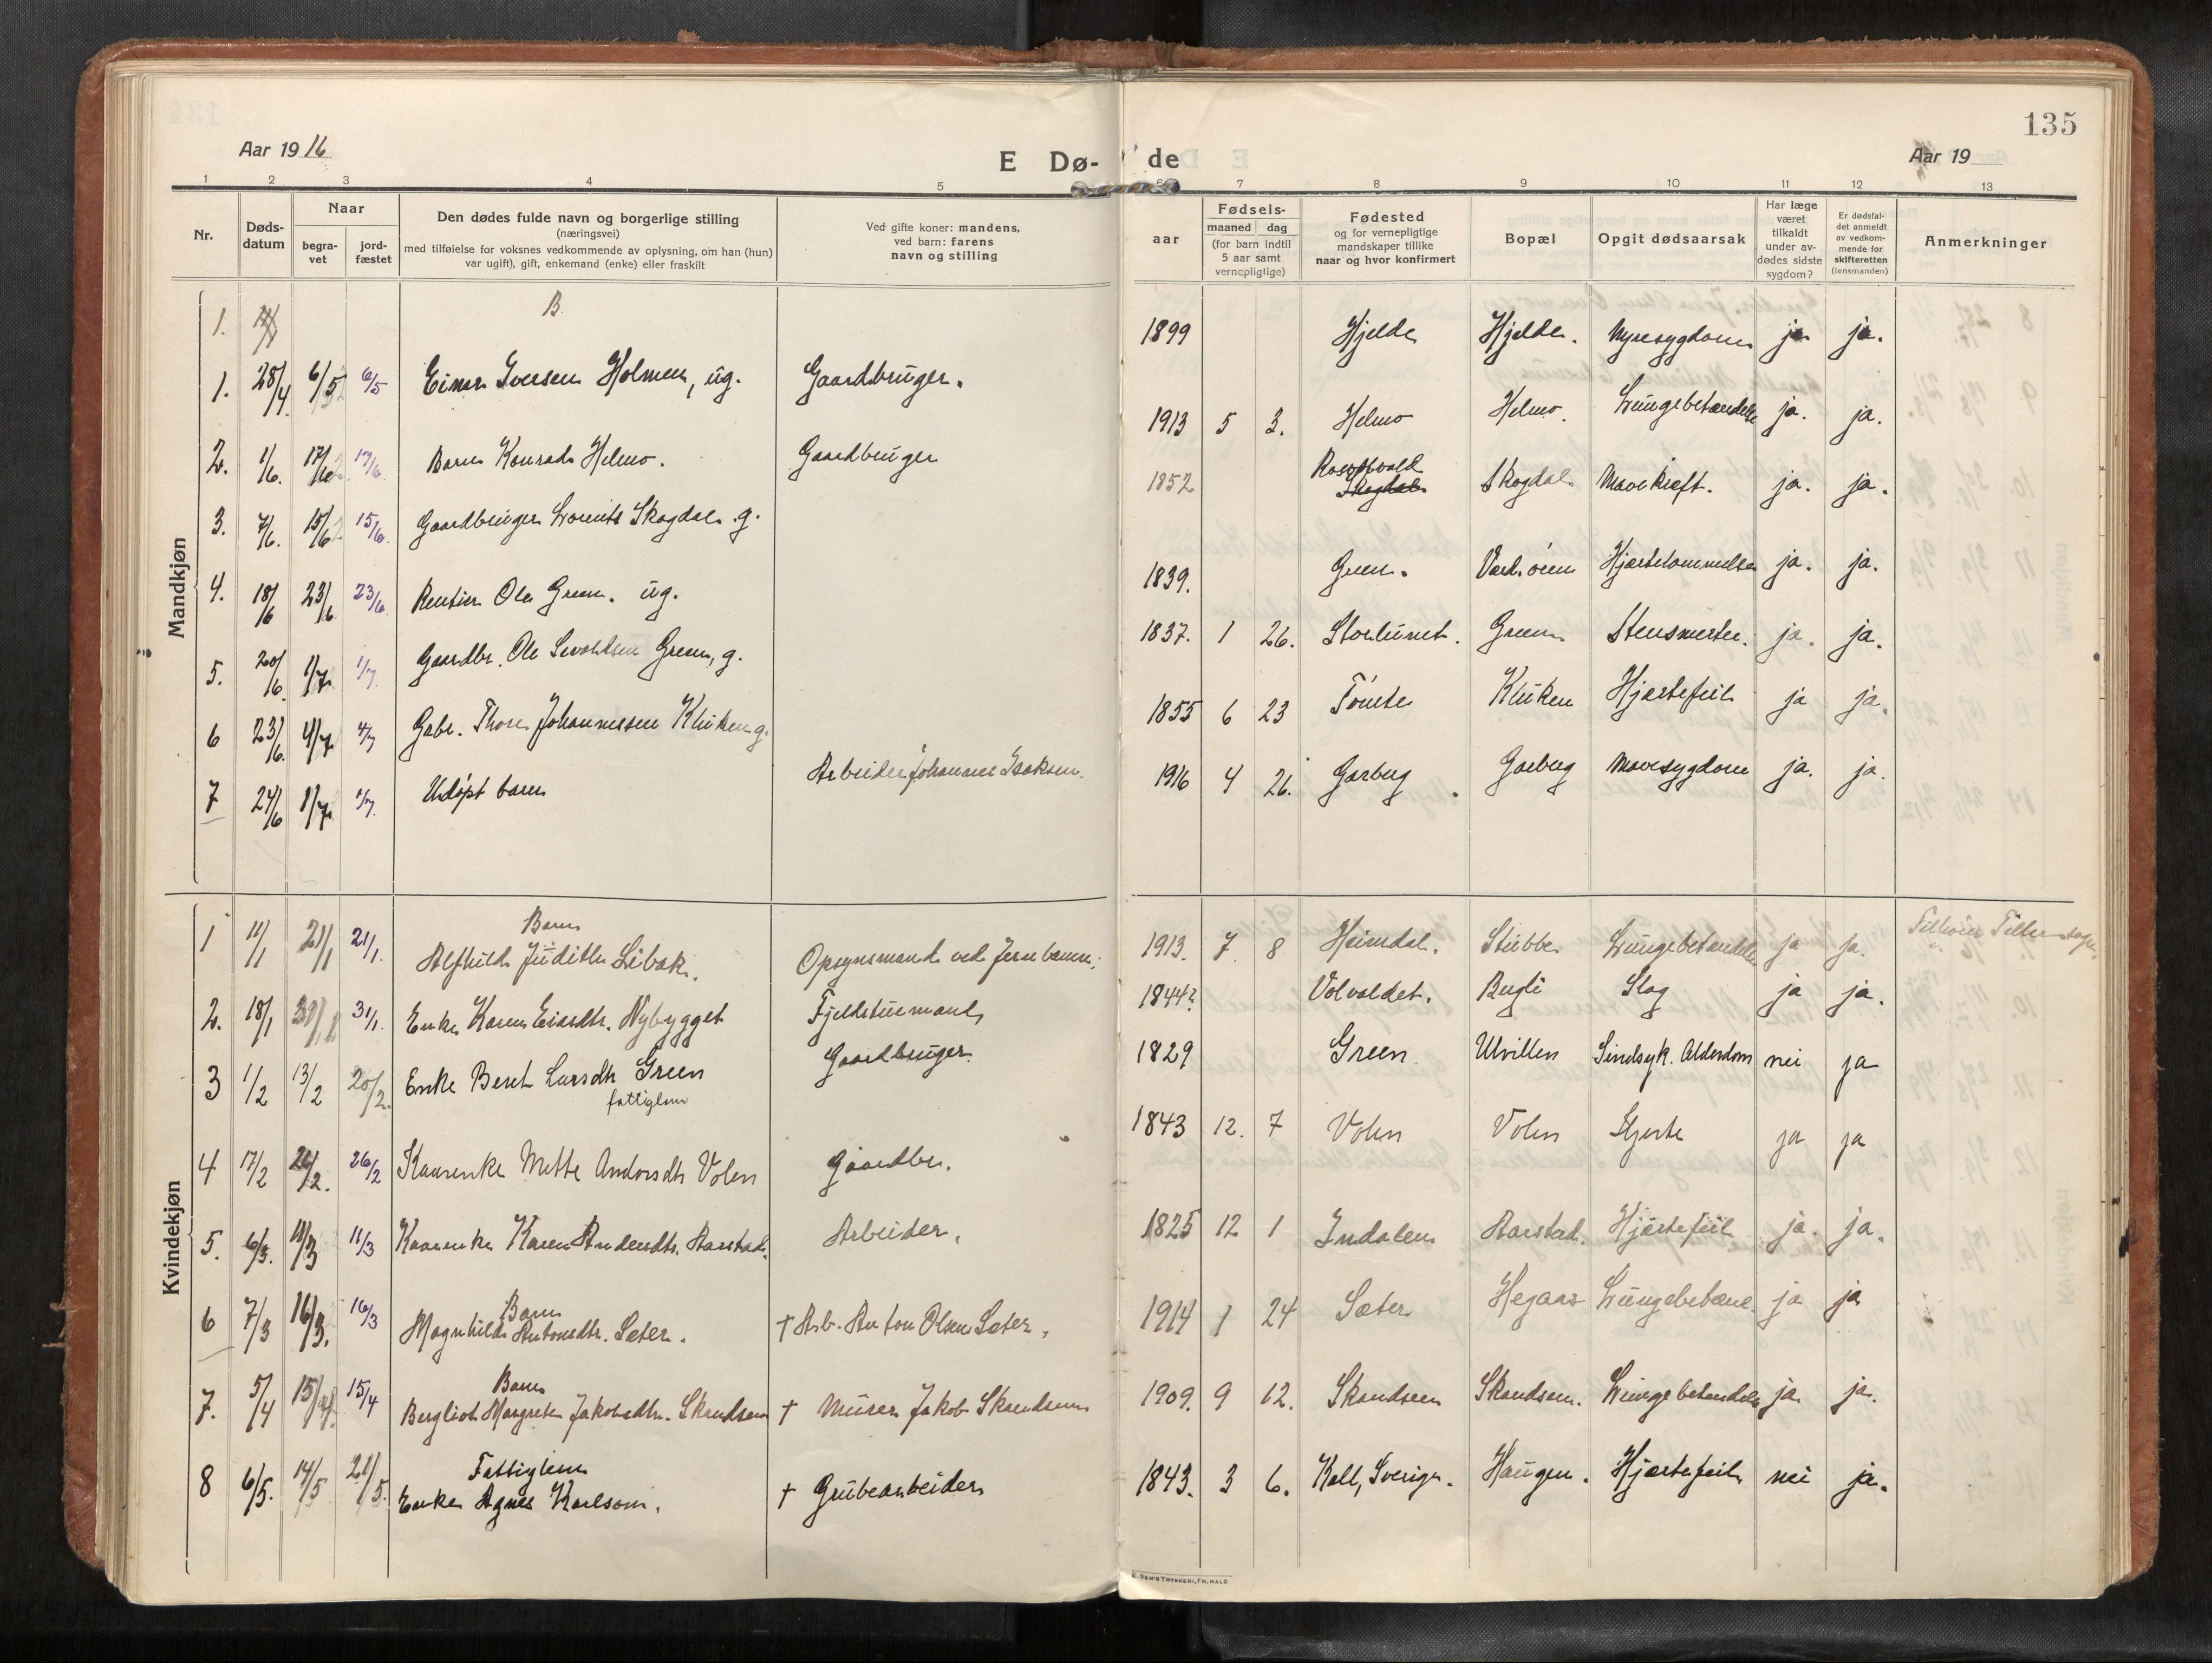 135
Aar 19 16
E Dø-
de
Aar 19
1 2 3 4 5
6 7 8 9 10 11 12 13
Nr.
Døds-
datum
Naar
begra-
vet
jord-
fæstet
Den dødes fulde navn og borgerlige stilling
(næringsvei)
med tilføielse for voksnes vedkommende av oplysning, om han (hun)
var ugift), gift, enkemand (enke) eller fraskilt
Ved gifte koner: mandens,
ved barn: farens
navn og stilling
aar
Fødsels-
maaned dag
(for barn indtil
5 aar samt
vernepligtige)
Fødested
og for vernepligtige
mandskaper tillike
naar og hvor konfirmert
Bopæl
Opgit dødsaarsak
Har læge
været
tilkaldt
under av-
dødes sidste
sygdom?
Er dødsfal-
det anmeldt
av vedkom-
mende for
skifteretten
(lensmanden)
Anmerkninger
Mandkjøn
1. B.
1. 28/4. 6/5 6/5 Einar Iversen Holmen, ug. Gaardbruger. 1899 Hjelde Hjelde. Nyresygdom ja ja.
2. 1/6. 17/6 17/6. Barn Konrad Helmo. Gaardbruger 1913 5 3. Helmo Helmo. Lungebetændelse ja. ja.
3. 7/6. 15/6 15/6. Gaardbruger Lorents Skogdal. g. 1852 Rosvold Skogdal Skogdal Mavekræft. ja. ja.
4. 18/6 23/6 23/6 Rentier Ole Green. ug. 1839. Green. Værdsøien Hjertelammelse ja. ja.
5. 20/6. 1/7. 1/7. Gaardbr. Ole Sivaldsen Green, g. 1837. 1 26. Storlunet. Green Stensmerter. ja. ja.
6 23/6. 4/7 4/7 Gabr. Thore Johannessen Kluken g. 1855 6 23 Tomte Kluken Hjertefeil ja ja.
7 24/6 1/7. 1/7. Udøpt barn Arbeider Johannes Isaksen. 1916 4 26. Garberg Garberg Mavesygdom ja. ja.
Kvindekjøn
1 11/1 21/1 21/1. Barn
Alfhild Judith Libak. Opsynsmand ved Jernbanen. 1913. 7. 8 Heimdal. Stubbe Lungebetændelse ja ja. Tilhører Tiller sogn.
2. 18/1 31/1. Enke Karen Eiasdtr. Nybygget Fjeldstuemand 1844? Volvoldet. Rugli Slag ja ja.
3 1/2 13/2 20/2. Enke Beret Larsdtr Green
fattiglem Gaardbruger. 1829 Green Ulvillen Sindsyk. Alderdom nei ja
4 17/2 26/2. 26/2 Kaarenke Mette Andorsdtr Volen Gaardbr. 1843 12. 7 Volen Volen Hjerte ja ja
5. 6/3. 11/3 11/3 Kaarenke Karen Andersdtr. Aarstad. Arbeider. 1825 12 1 Indalen Aarstad. Hjertefeil ja. ja.
6 7/3 16/3. 16/3 Barn
Magnhild Antonsdtr. Sæter. † Arb. Anton Olsen Sæter. 1914 1 24 Sæter Hegaas Lungebetænd. ja ja
7. 5/4 15/4 15/4 Barn
Bergliot Margrete Jakobsdtr. Skandsen † Murer Jakob Skandsen 1909. 9 12. Skandsen Skandsen. Lungebetændelse ja. ja.
8 6/5. 14/5 21/5. Fattiglem
Enke Agnes Karlson. † Grubearbeider 1843. 3 6. Kall, Sverige. Haugen. Hjertefeil nei ja.
E. SEM'S TRYKKERI, FR.HALD